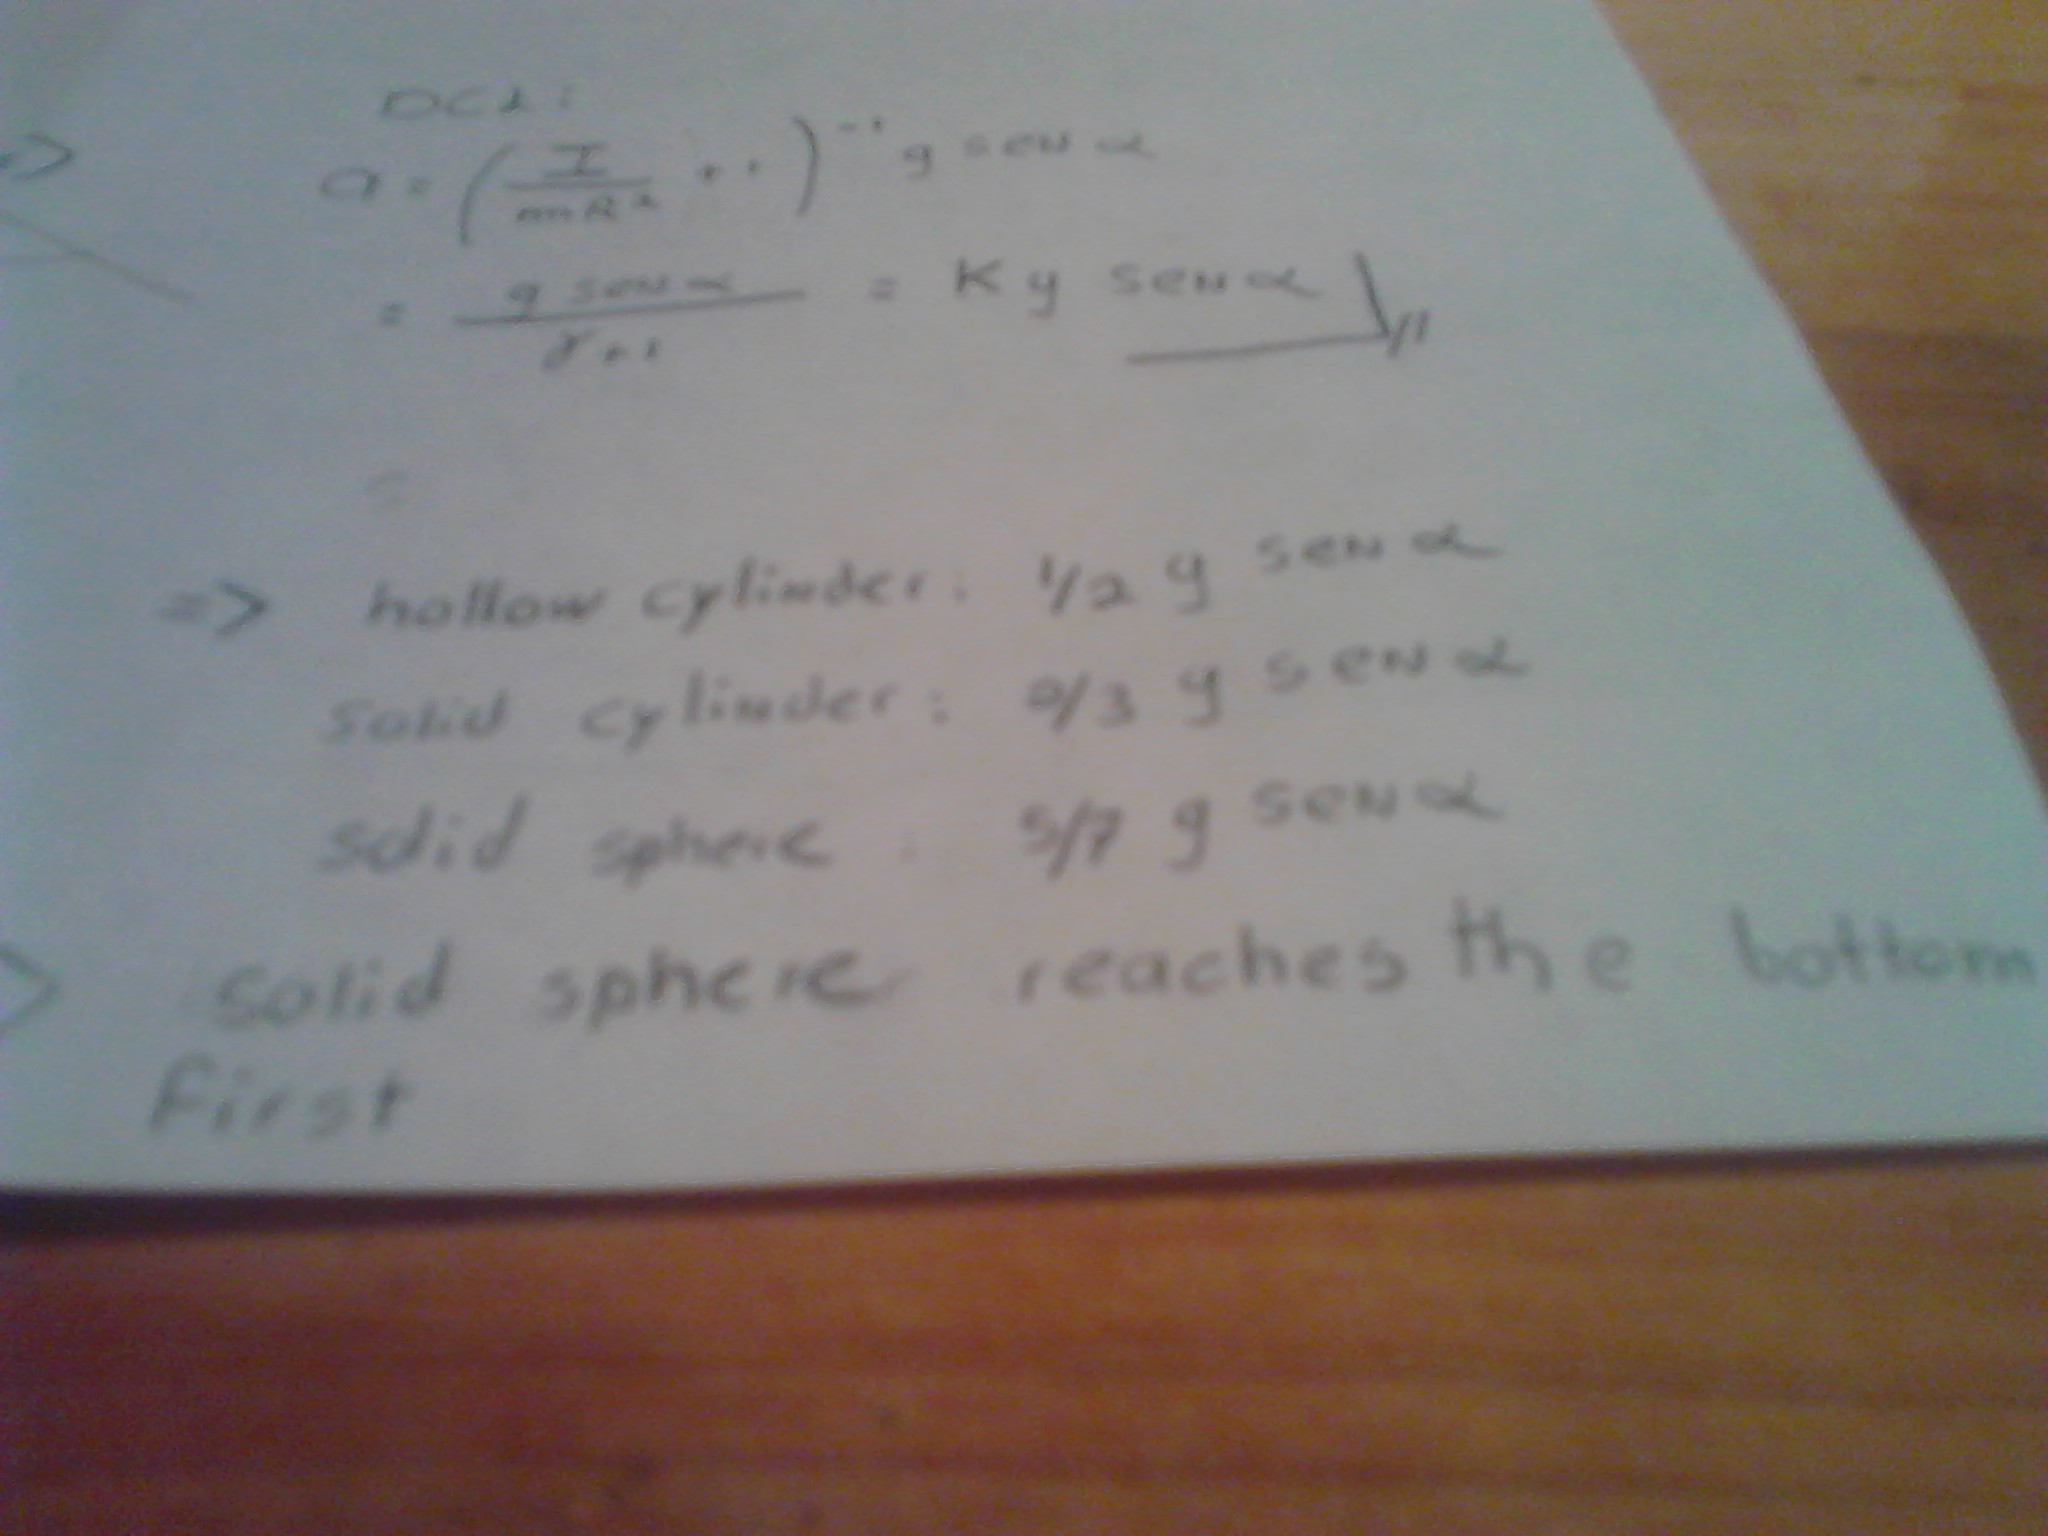 DCL:
=> a = (I/mR² + 1)⁻¹ g sen α
= g sen α / (γ+1) = K g sen α
=
=> hollow cylinder: 1/2 g sen α
solid cylinder: 2/3 g sen α
solid sphere: 5/7 g sen α
> solid sphere reaches the bottom
first